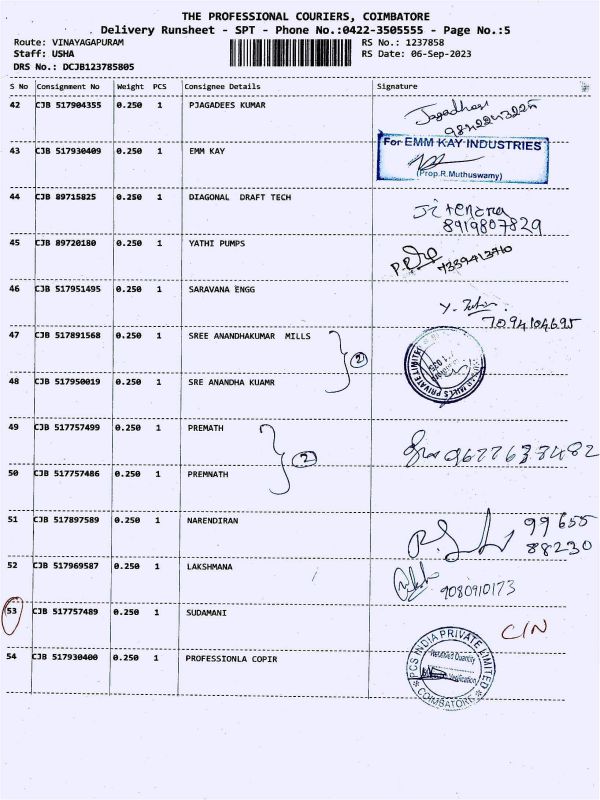 THE PROFESSIONAL COURIERS, COIMBATORE
Delivery Runsheet - SPT - Phone No.:0422-3505555 - Page No.:5
Route: VINAYAGAPURAM RS No.: 1237858
Staff: USHA RS Date: 06-Sep-2023
DRS No.: DCJB123785805
S No Consignment No Weight PCS Consignee Details Signature
42 CJB 517904355 0.250 1 PJAGADEES KUMAR
43 CJB 517930409 0.250 1 EMM KAY
For EMM KAY INDUSTRIES
(Prop.R.Muthuswamy)
44 CJB 89715825 0.250 1 DIAGONAL DRAFT TECH
Jitendra
8919807829
45 CJB 89720180 0.250 1 YATHI PUMPS
7339413710
46 CJB 517951495 0.250 1 SARAVANA ENGG
7094104695
47 CJB 517891568 0.250 1 SREE ANANDHAKUMAR MILLS
2
48 CJB 517950019 0.250 1 SRE ANANDHA KUAMR
49 CJB 517757499 0.250 1 PREMATH
2
9677637482
50 CJB 517757486 0.250 1 PREMNATH
51 CJB 517897589 0.250 1 NARENDIRAN
99655
88230
52 CJB 517969587 0.250 1 LAKSHMANA
9080910173
53 CJB 517757489 0.250 1 SUDAMANI
C/N
54 CJB 517930400 0.250 1 PROFESSIONLA COPIR
PCS INDIA PRIVATE LIMITED
COIMBATORE